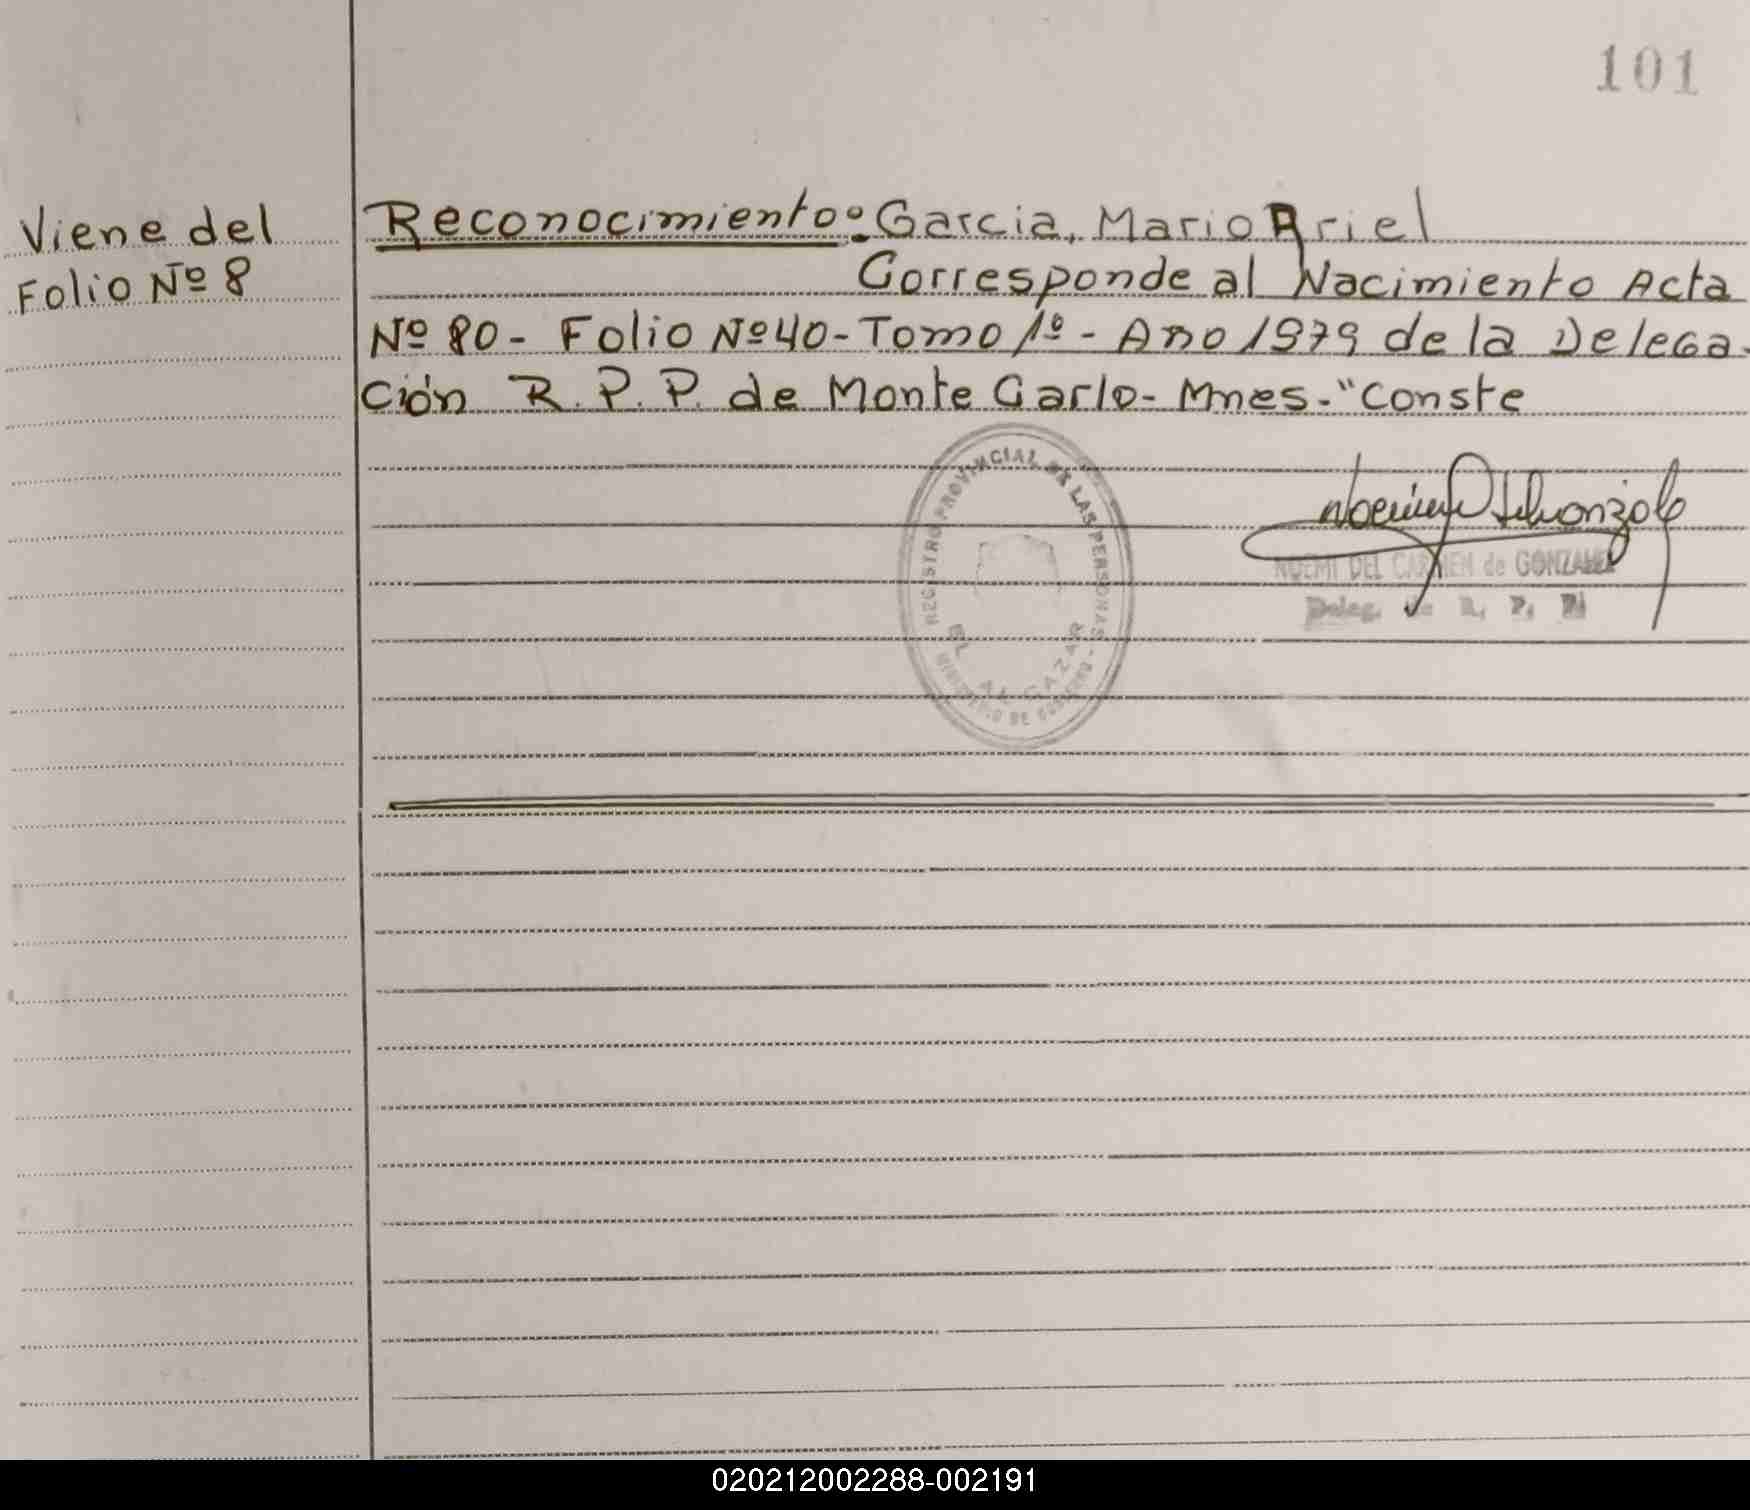 101
Viene del
Folio Nº 8
Reconocimiento: Garcia, Mario Ariel
Corresponde al Nacimiento Acta
Nº 80 - Folio Nº 40 - Tomo 1º - Año 1979 de la Delega-
ción R. P. P. de Monte Carlo - Mnes.-"Conste
REGISTRO PROVINCIAL DE LAS PERSONAS
EL ALCAZAR
MINISTERIO DE GOBIERNO
NOEMI DEL CARMEN de GONZALEZ
Deleg. de R. P. P.
020212002288-002191